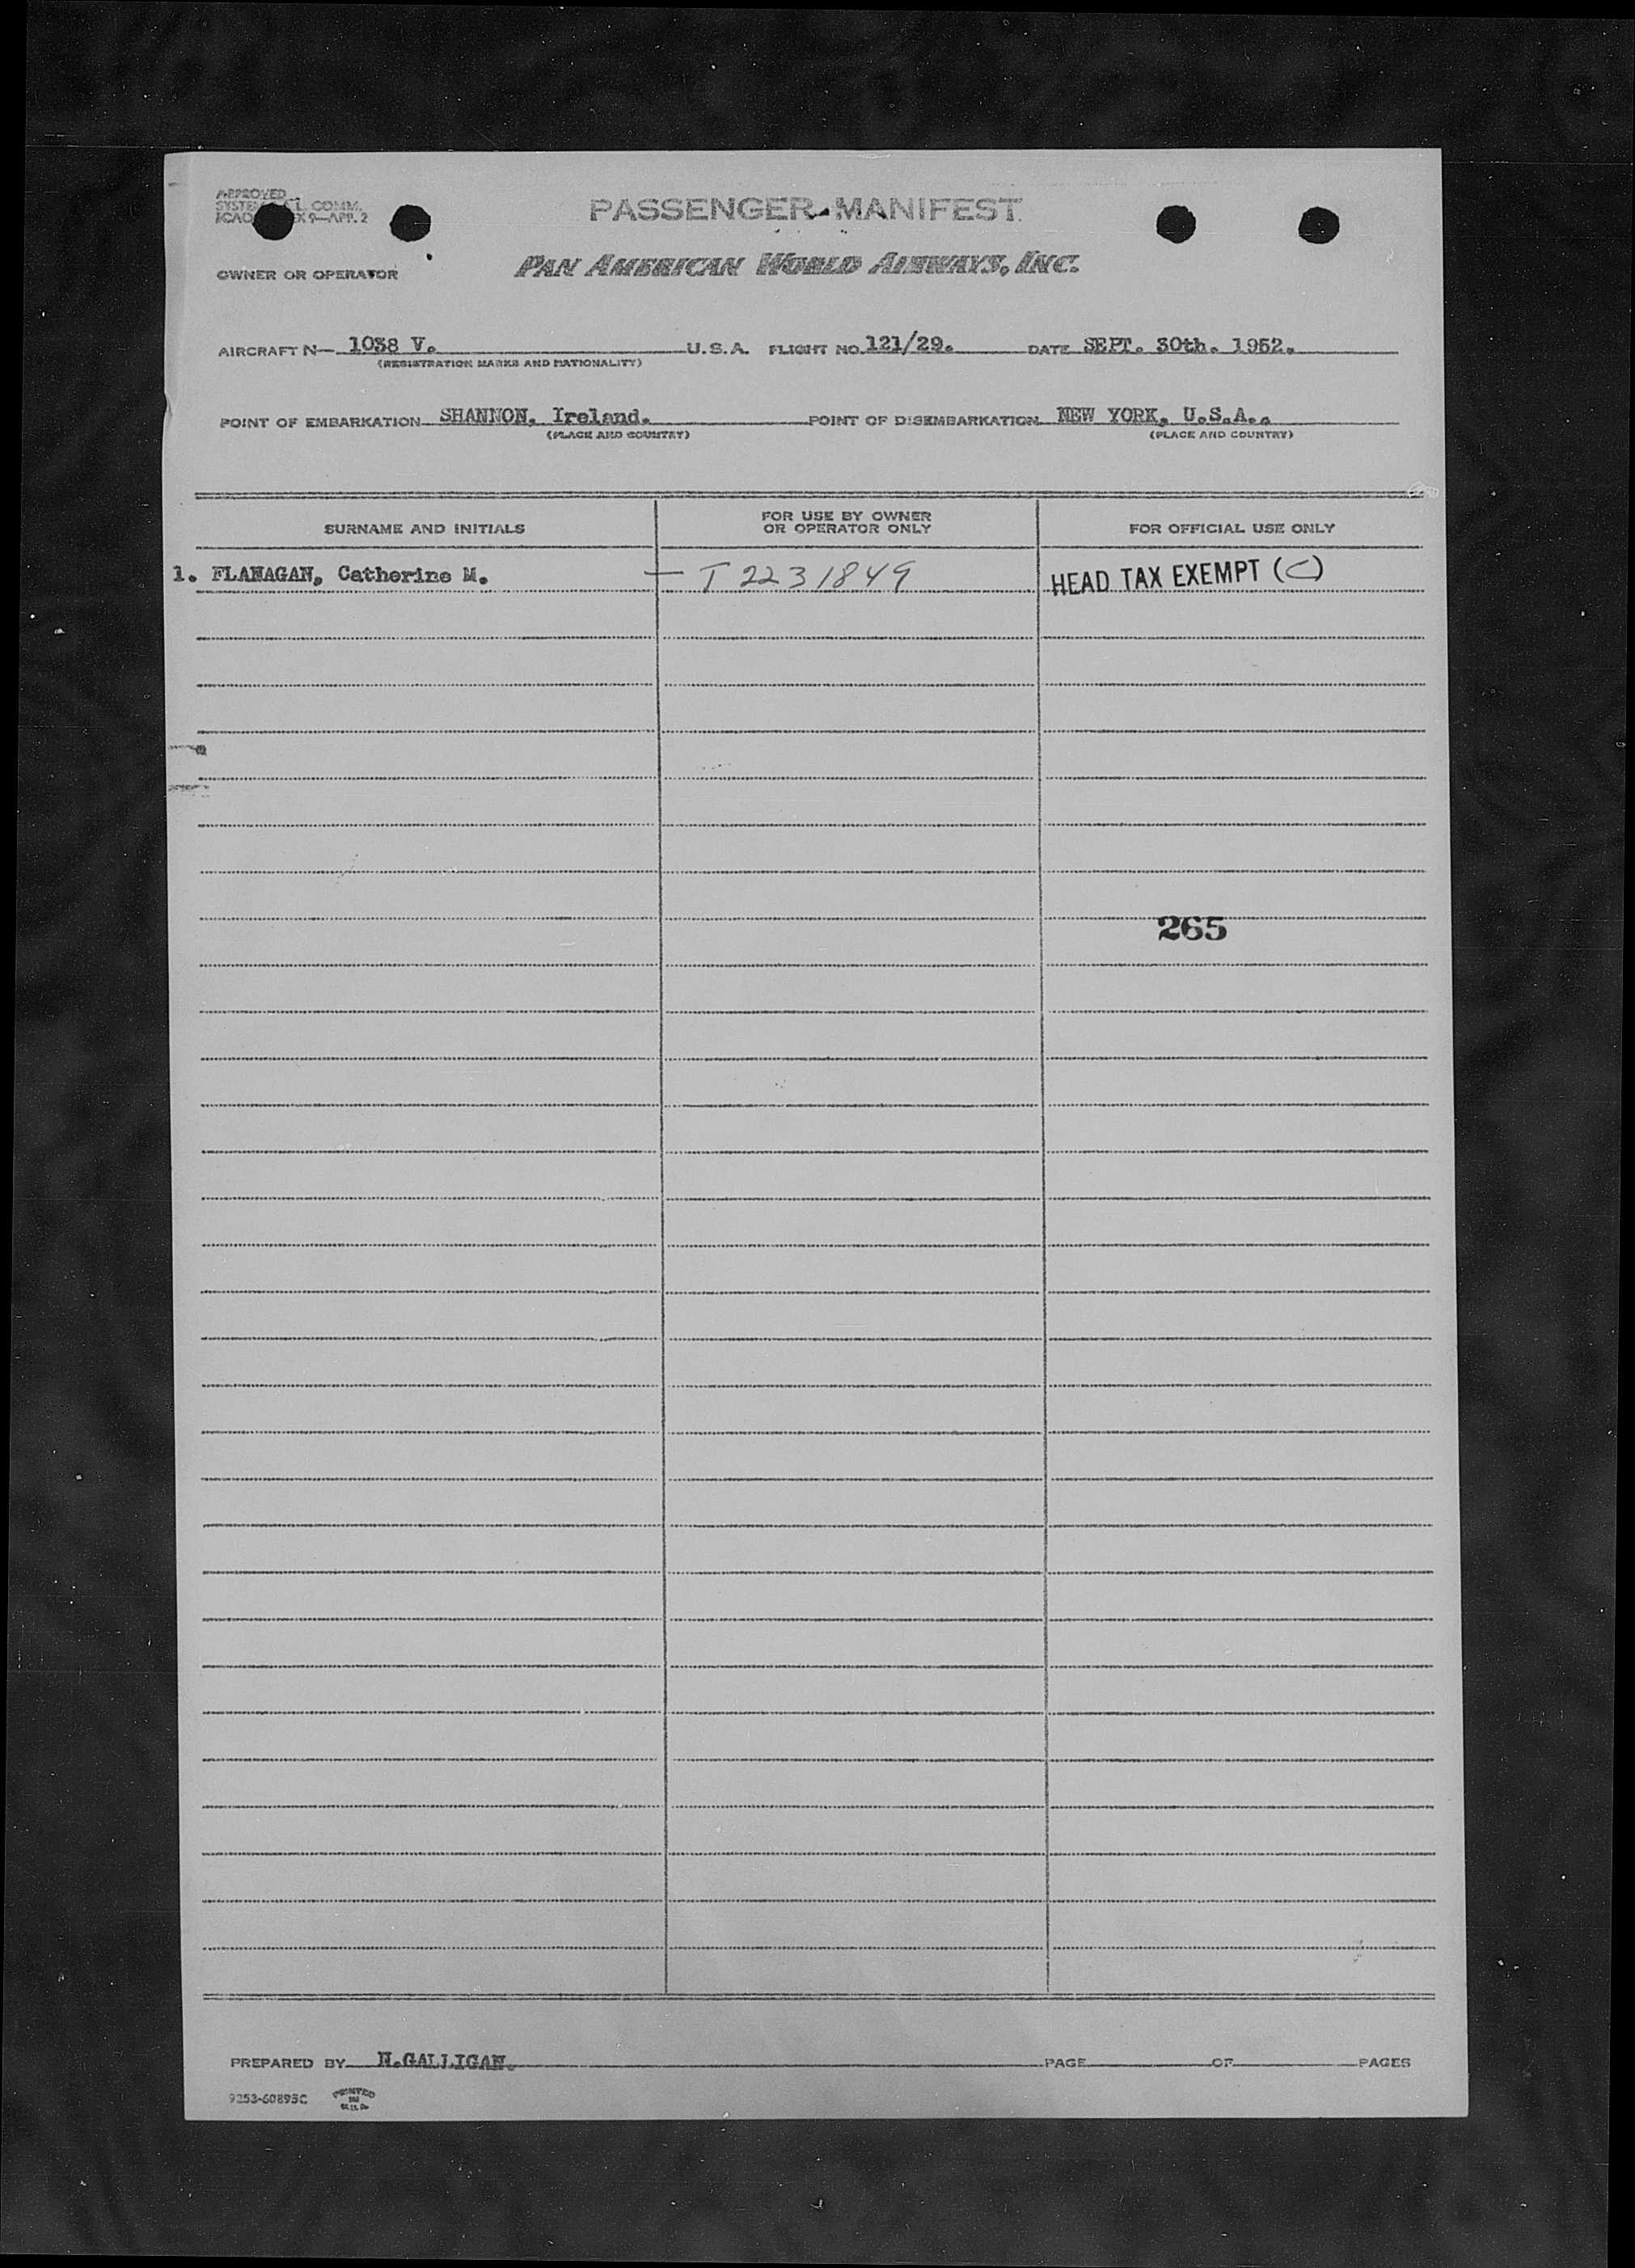 APPROVED
SYSTEM L. COMM.
ICAO X 9—APP. 2
PASSENGER MANIFEST
OWNER OR OPERATOR PAN AMERICAN WORLD AIRWAYS, INC.
AIRCRAFT N— 1038 V. U.S.A. FLIGHT NO. 121/29. DATE SEPT. 30th. 1952.
(REGISTRATION MARKS AND NATIONALITY)
POINT OF EMBARKATION SHANNON, Ireland. POINT OF DISEMBARKATION NEW YORK, U.S.A..
(PLACE AND COUNTRY) (PLACE AND COUNTRY)
SURNAME AND INITIALS FOR USE BY OWNER OR OPERATOR ONLY FOR OFFICIAL USE ONLY
1. FLANAGAN, Catherine M. — T 2231849 HEAD TAX EXEMPT (C)
265
PREPARED BY N.GALLIGAN. PAGE OF PAGES
9253-60895C PRINTED IN U.S.A.